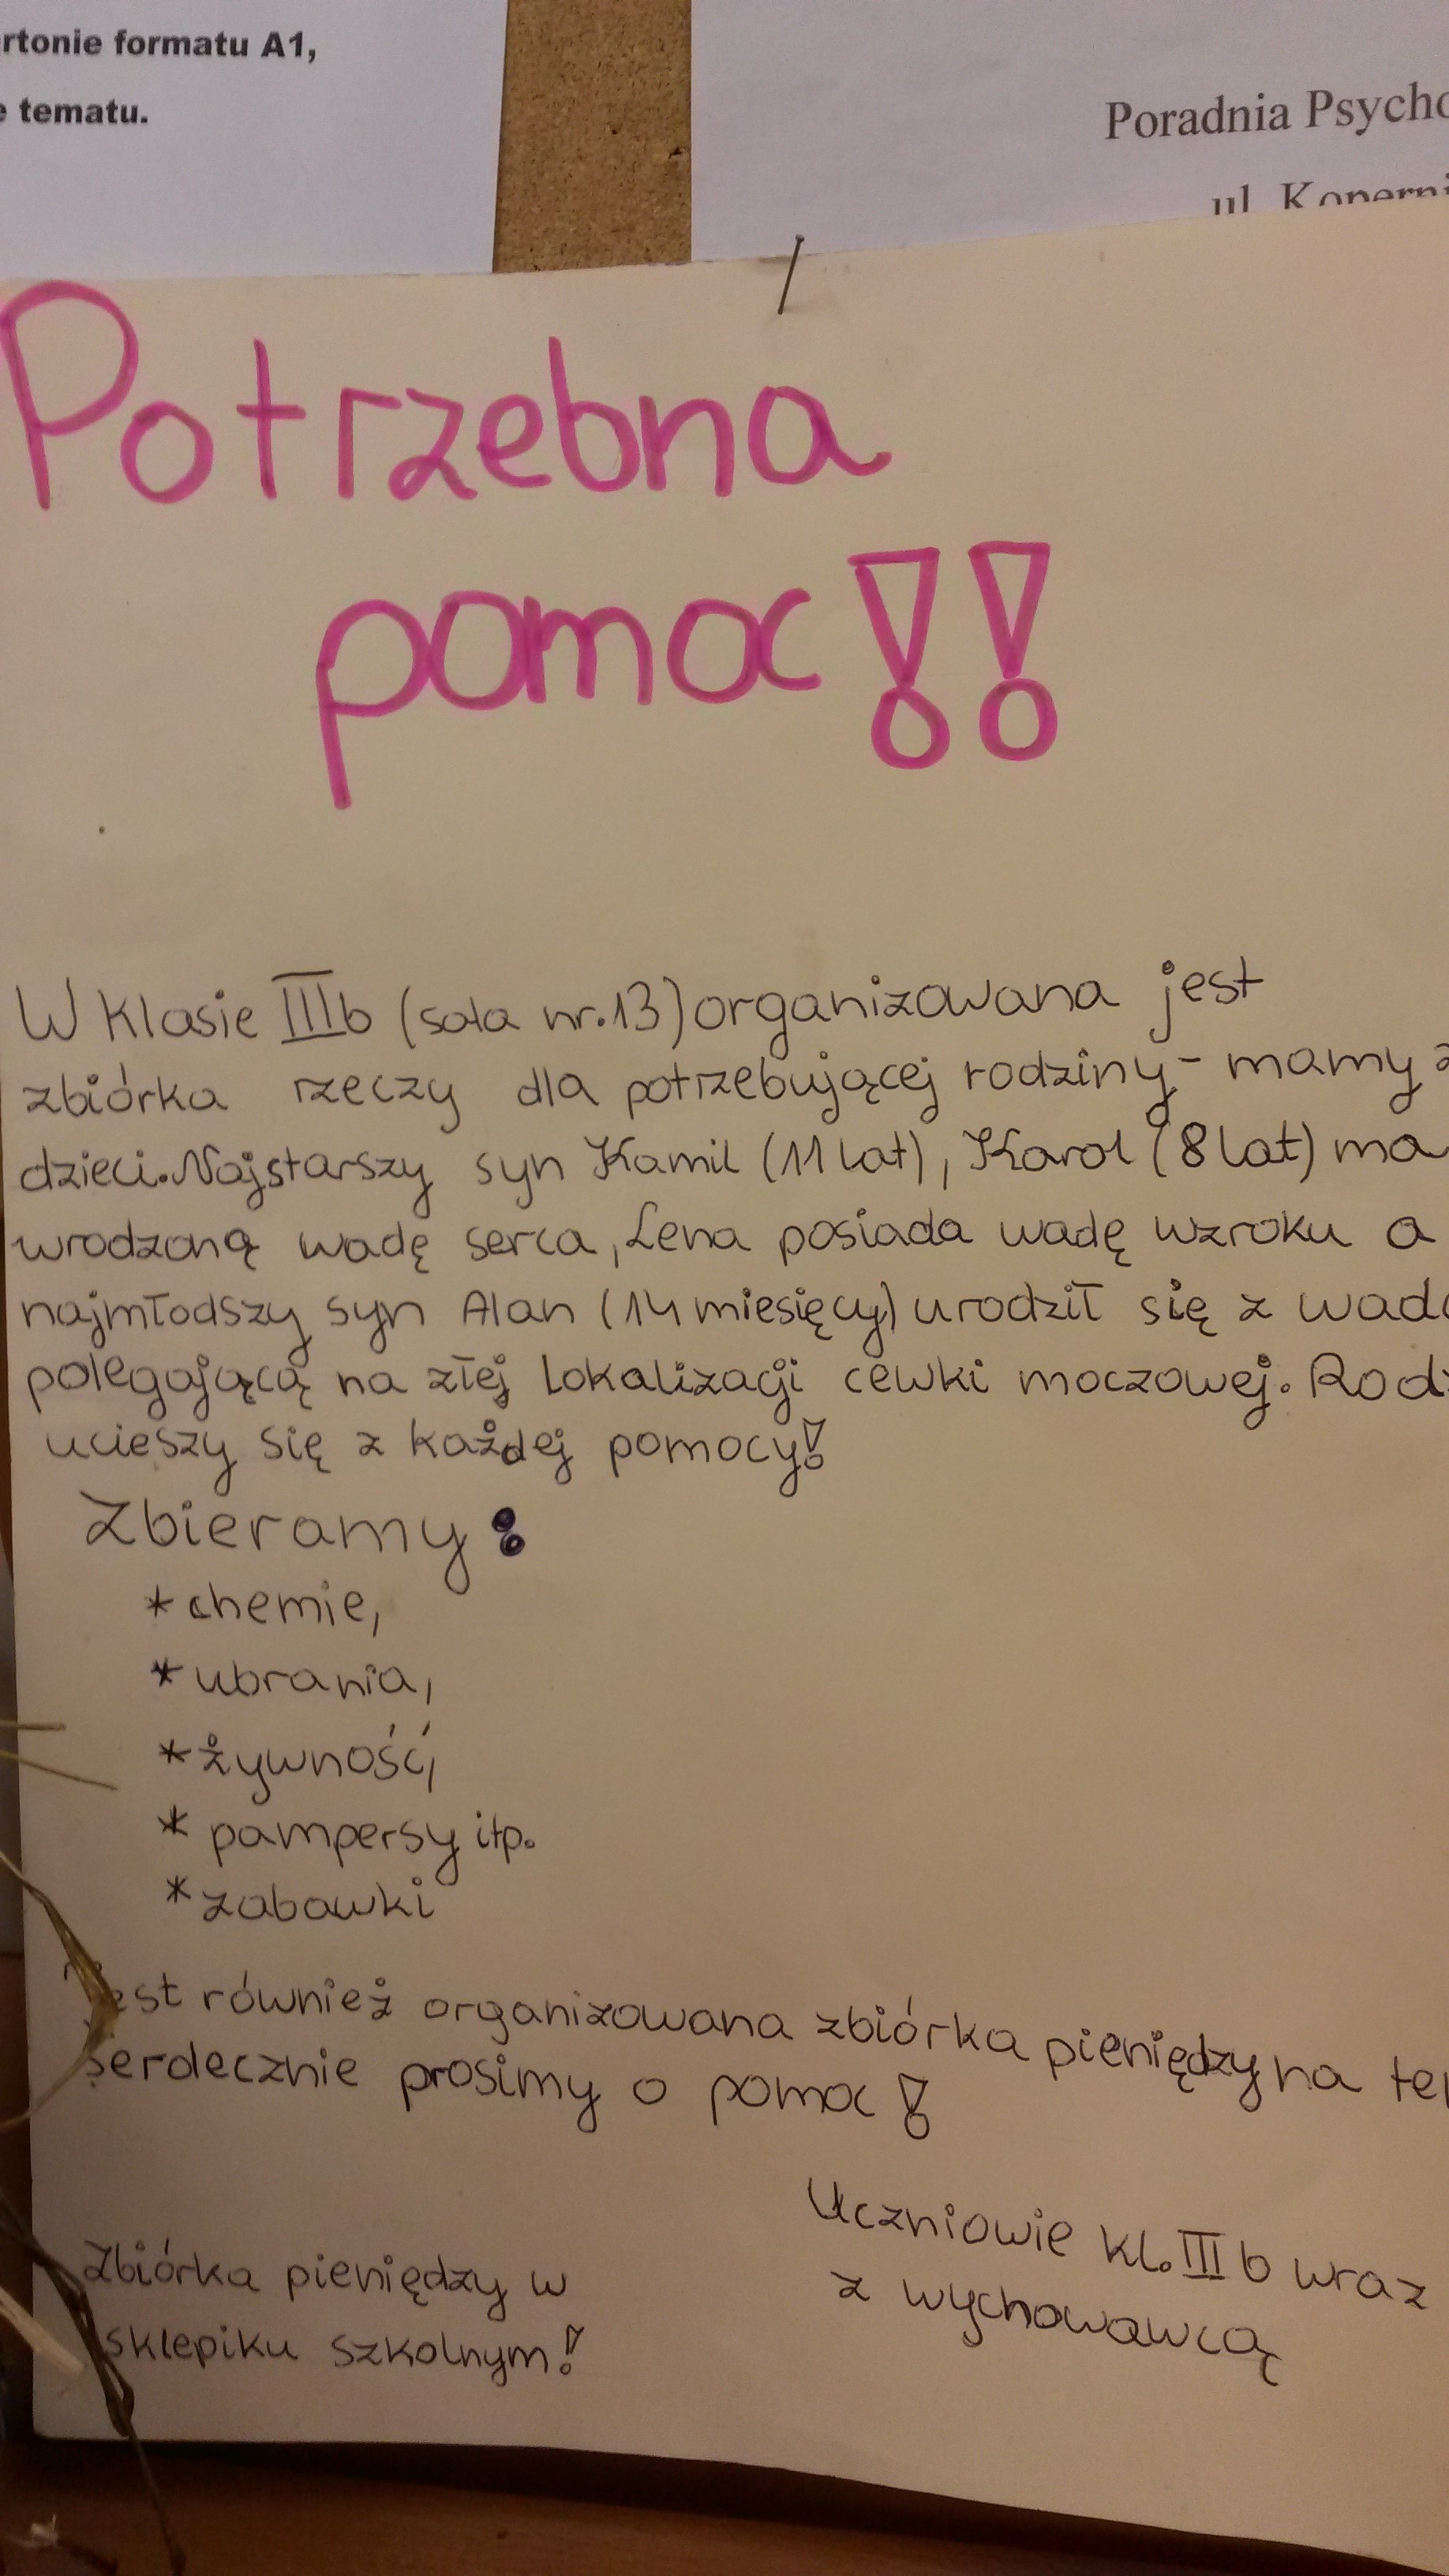 rtonie formatu A1,
e tematu.
Poradnia Psycho
ul. Koperni
Potrzebna
pomoc!!
W klasie IIIb (sala nr.13) organizowana jest
zbiórka rzeczy dla potrzebującej rodziny - mamy z
dzieci. Najstarszy syn Kamil (11 lat), Karol (8 lat) ma
wrodzoną wadę serca, Lena posiada wadę wzroku a
najmłodszy syn Alan (14 miesięcy) urodził się z wad
polegającą na złej lokalizacji cewki moczowej. Rodz
ucieszy się z każdej pomocy!
Zbieramy:
* chemie,
* ubrania,
* żywność,
* pampersy itp.
* zabawki
Jest również organizowana zbiórka pieniędzy na te
serdecznie prosimy o pomoc!
Uczniowie kl. III b wraz
z wychowawcą
Zbiórka pieniędzy w
sklepiku szkolnym!